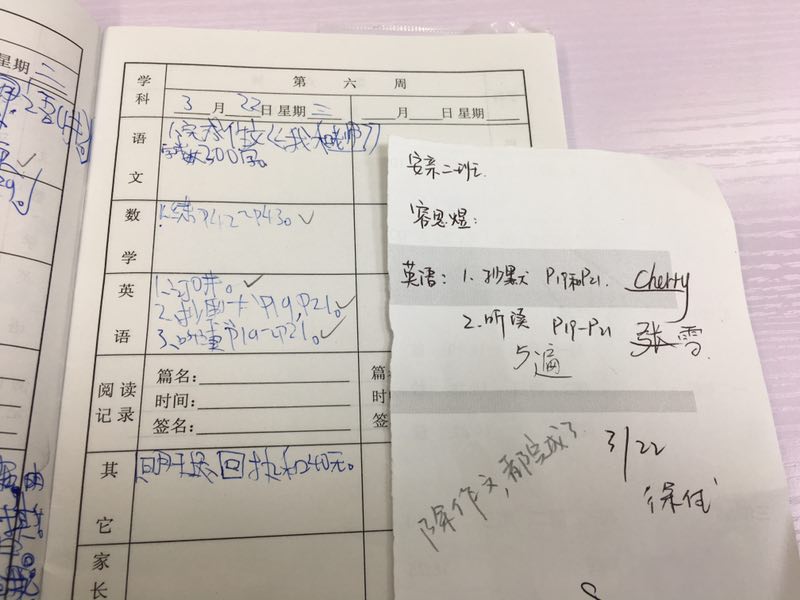 星期三
第六周
学科
3月22日星期三
月 日星期
语文
1、完成作文《我和老师》
字数300字。
数学
1.练P42~P43。✓
英语
1.订正。✓
2.抄默 P19,P21。✓
3.听读P19~P21。✓
阅读记录
篇名:
时间:
签名:
其它
回执和240元。
家长
安亲二班
容思煜:
英语: 1. 抄默 P19和P21. Cherry
2. 听读 P19-P21 张雪
5遍
除作文,都完成了
3/22